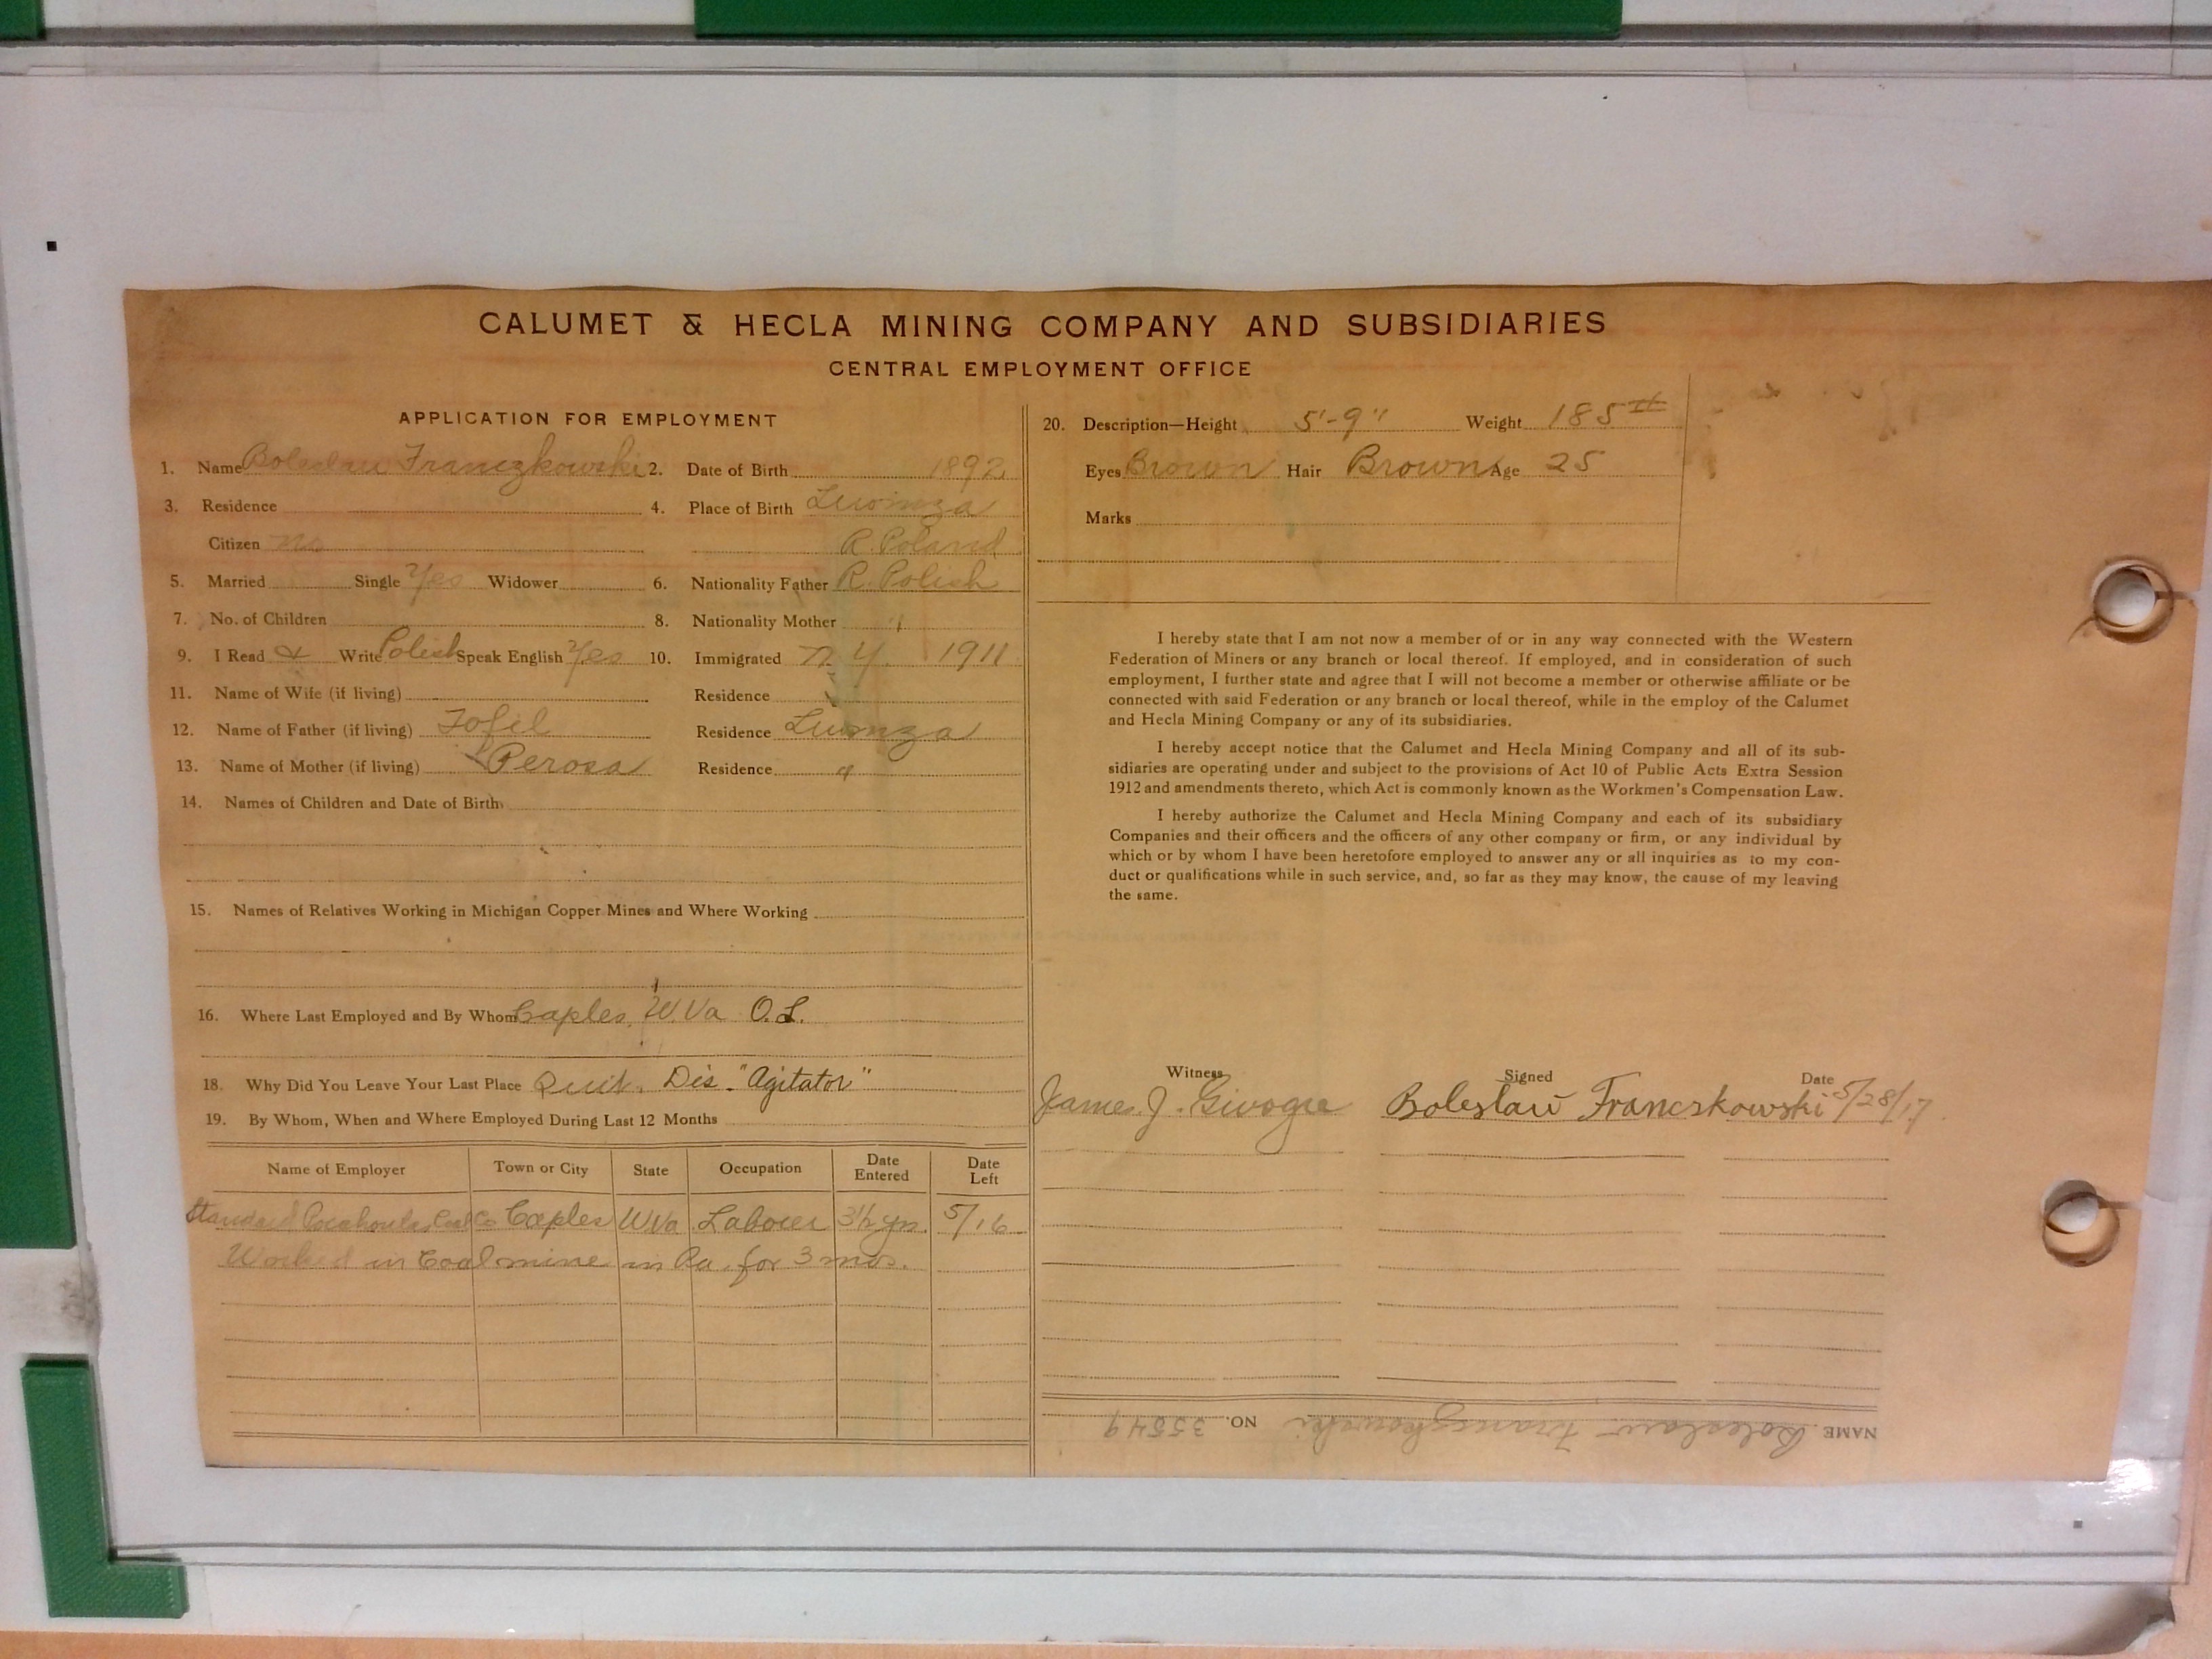 CALUMET & HECLA MINING COMPANY AND SUBSIDIARIES
CENTRAL EMPLOYMENT OFFICE
APPLICATION FOR EMPLOYMENT
1. Name Boleslaw Franczkowski 2. Date of Birth 1892
3. Residence 4. Place of Birth Luomza
Citizen no R. Poland
5. Married Single Yes Widower 6. Nationality Father R. Polish
7. No. of Children 8. Nationality Mother "
9. I Read & Write Polish Speak English Yes 10. Immigrated N.Y. 1911
11. Name of Wife (if living) Residence
12. Name of Father (if living) Tofil Residence Luomza
13. Name of Mother (if living) Perosa Residence "
14. Names of Children and Date of Birth
15. Names of Relatives Working in Michigan Copper Mines and Where Working
16. Where Last Employed and By Whom Caples, W.Va O.L.
18. Why Did You Leave Your Last Place Quit. Dis. "Agitator"
19. By Whom, When and Where Employed During Last 12 Months
Name of Employer Town or City State Occupation Date Entered Date Left
Standard Pocahontas Coal Co Caples W Va Laborer 3½ yrs. 5/16
Worked in Coal mine in Pa. for 3 mos.
20. Description—Height 5'-9" Weight 185 #
Eyes Brown Hair Brown Age 25
Marks
I hereby state that I am not now a member of or in any way connected with the Western
Federation of Miners or any branch or local thereof. If employed, and in consideration of such
employment, I further state and agree that I will not become a member or otherwise affiliate or be
connected with said Federation or any branch or local thereof, while in the employ of the Calumet
and Hecla Mining Company or any of its subsidiaries.
I hereby accept notice that the Calumet and Hecla Mining Company and all of its sub-
sidiaries are operating under and subject to the provisions of Act 10 of Public Acts Extra Session
1912 and amendments thereto, which Act is commonly known as the Workmen's Compensation Law.
I hereby authorize the Calumet and Hecla Mining Company and each of its subsidiary
Companies and their officers and the officers of any other company or firm, or any individual by
which or by whom I have been heretofore employed to answer any or all inquiries as to my con-
duct or qualifications while in such service, and, so far as they may know, the cause of my leaving
the same.
Witness Signed Date
James J. Boleslaw Francskowski 5/28/17
NAME Boleslaw Franczkowski NO. 35549